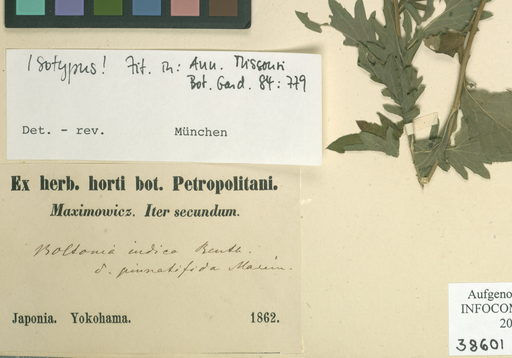 Isotypus! Zit. in: Ann. Missouri
Bot. Gard. 84: 779
Det. - rev. München
Ex herb. horti bot. Petropolitani.
Maximowicz. Iter secundum.
Boltonia indica Benth.
δ. pinnatifida Maxim.
Japonia. Yokohama. 1862.
Aufgeno
INFOCOM
20
38601